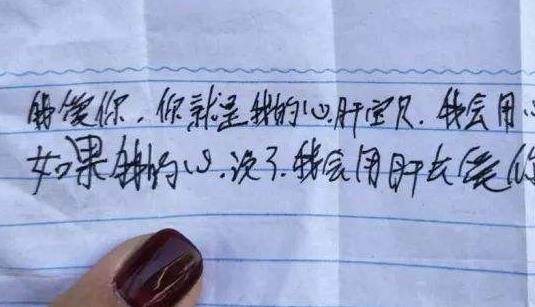 我爱你，你就是我的心肝宝贝，我会用心
如果我的心没了，我会用肝去爱你